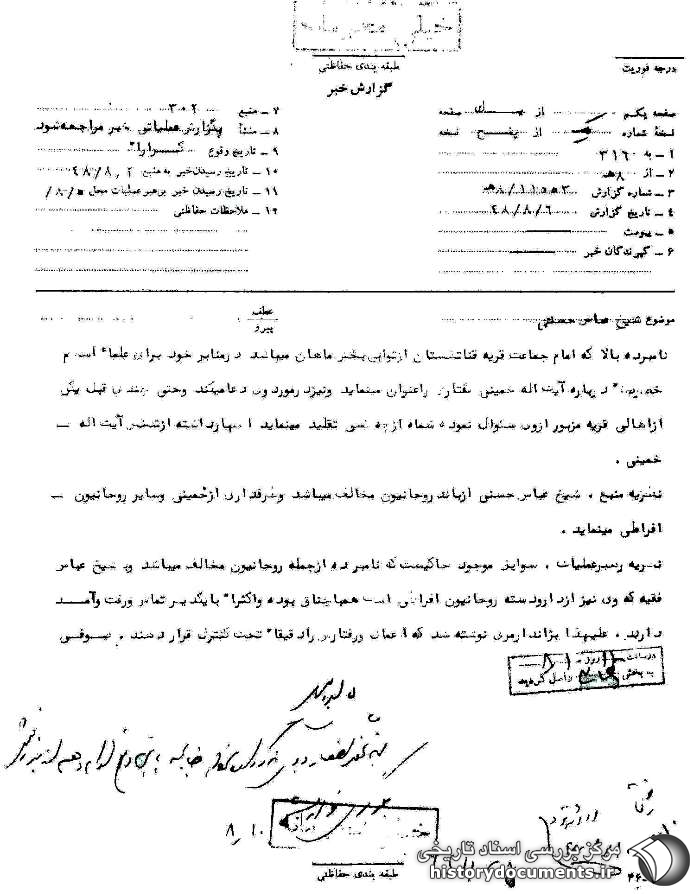 خیلی محرمانه
طبقه بندی حفاظتی
درجه فوریت
گزارش خبر
صفحه یکم از یک صفحه
نسخه شماره از پنج نسخه
۱ – به ۳۱۶
۲ – از ۸ هـ
۳ – شماره گزارش ۱۱۵۵۳/۸هـ
۴ – تاریخ گزارش ۴۸/۸/۶
۵ – پیوست
۶ – گیرندگان خبر
۷ – منبع ۳۰۲
۸ – منشأ بگزارش عملیاتی خبر مراجعه شود
۹ – تاریخ وقوع
۱۰ – تاریخ رسیدن خبر به منبع ۴۸/۸/۲
۱۱ – تاریخ رسیدن خبر برهبر عملیات محل ۵/۸/
۱۲ – ملاحظات حفاظتی
موضوع شیخ عباس حسنی
عطف
پیرو
نامبرده بالا که امام جماعت قریه قناتغستان ازتوابع بخش ماهان میباشد درمنابر خود برای علماء اسلام
خصوصاً درباره آیت اله خمینی گفتاری راعنوان مینماید ونیزدرموردوی دعامیکند وحتی چندی قبل یکی
ازاهالی قریه مزبور ازوی سئوال نموده شما ازچه کسی تقلید مینماید اظهارداشته ازشخص آیت اله –
خمینی .
نظریه منبع . شیخ عباس حسنی ازباند روحانیون مخالف میباشد وطرفداری ازخمینی وسایر روحانیون –
افراطی مینماید .
نظریه رهبرعملیات . سوابق موجود حاکیست که نامبرده ازجمله روحانیون مخالف میباشد وبا شیخ عباس
فقیه که وی نیز ازدارودسته روحانیون افراطی است هم میثاق بوده واکثراً بایکدیگر تماس ورفت وآمد
دارند . علیهذا بژاندارمری نوشته شد که اعمال ورفتاروی رادقیقاً تحت کنترل قرار دهند . صوفی
به بخش ۳۱۶ واصل گردید
۸/۱۰
طبقه بندی حفاظتی
مرکز بررسی اسناد تاریخی
historydocuments.ir